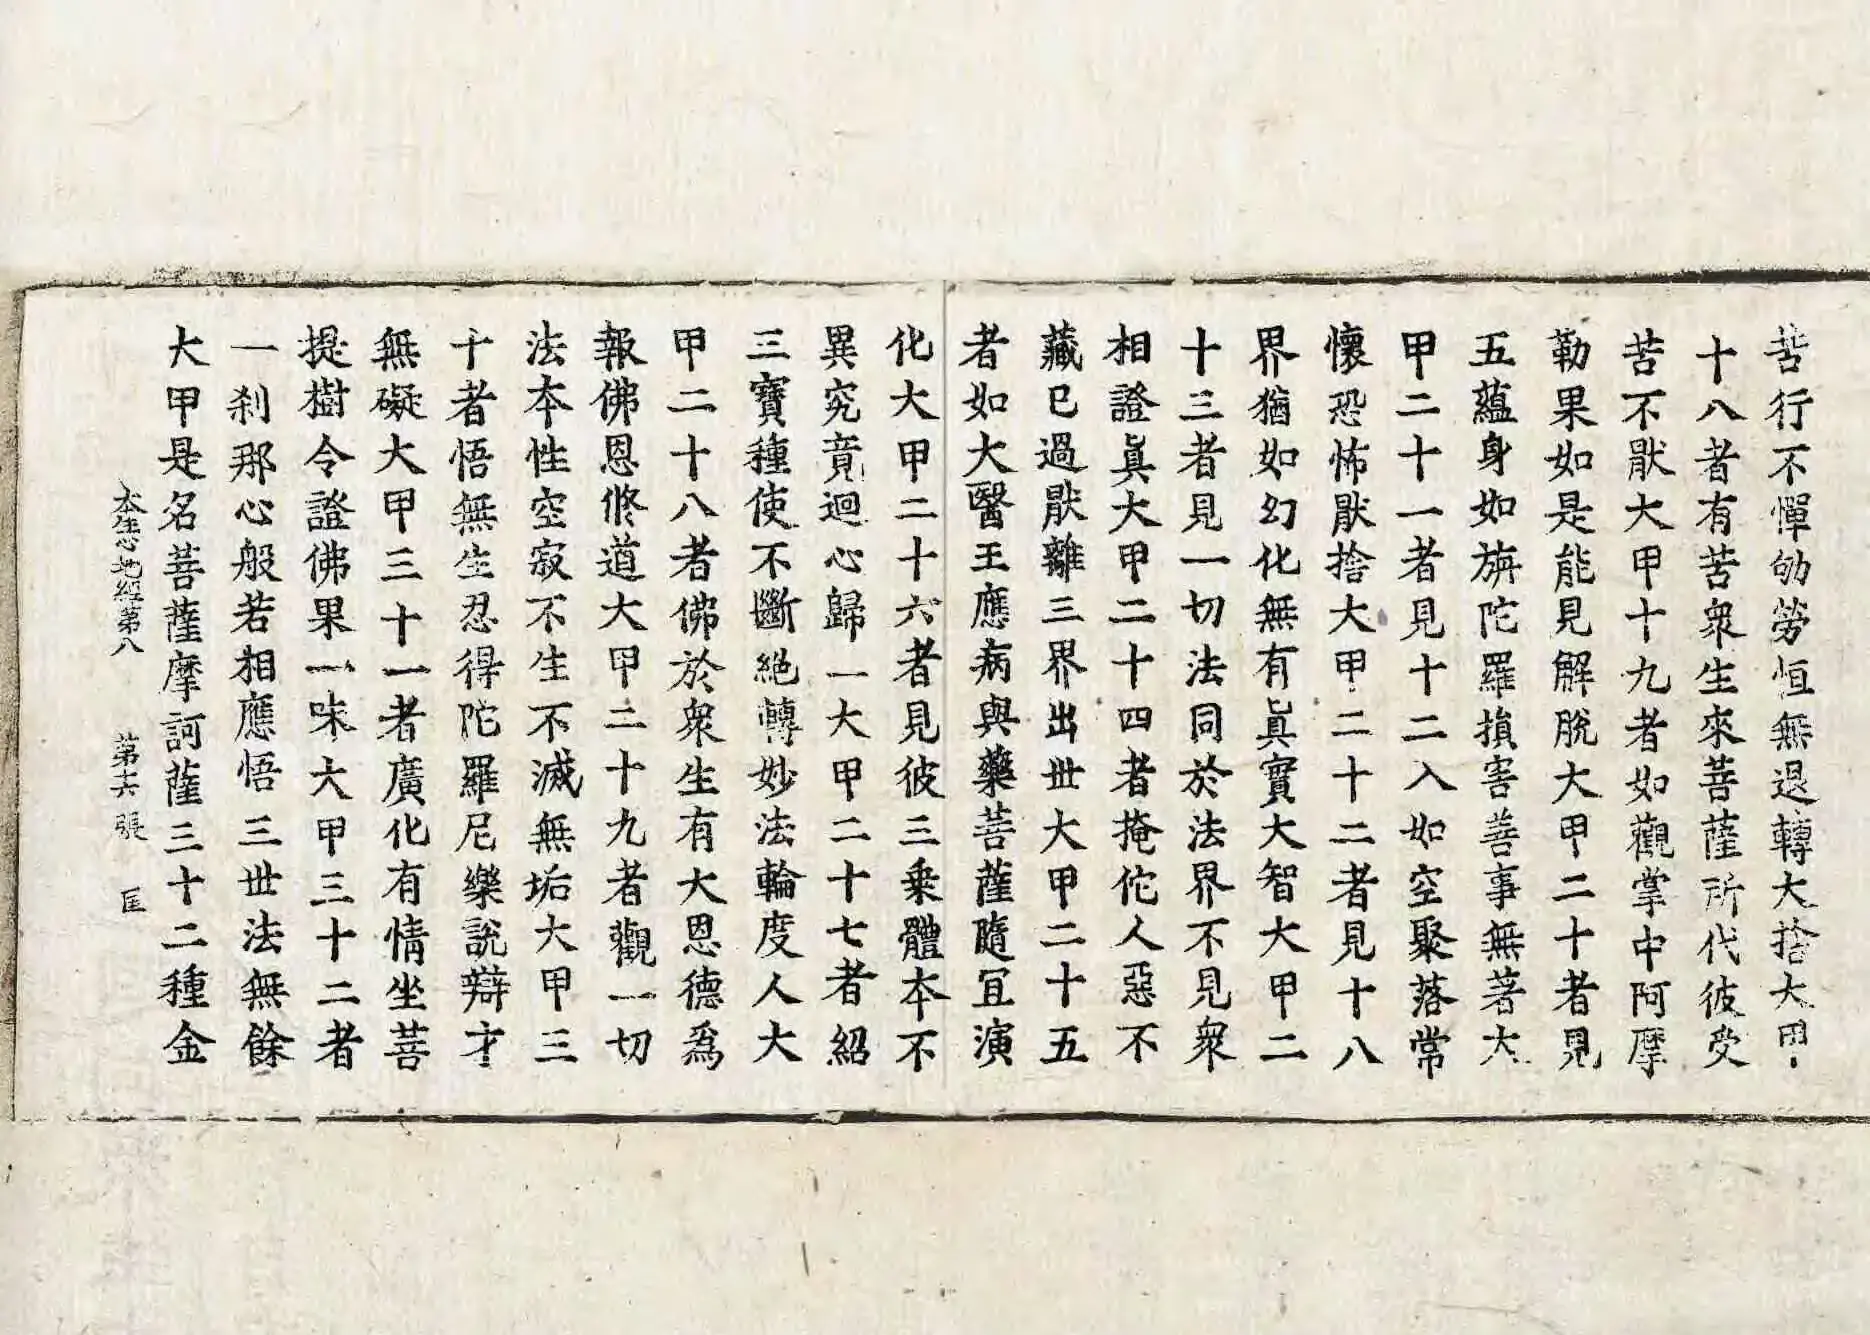 苦行不憚劬勞恒無退轉大捨大甲
十八者有苦衆生來菩薩所代彼受
苦不猒大甲十九者如觀掌中阿摩
勒果如是能見解脫大甲二十者見
五蘊身如旃陀羅損害善事無著大
甲二十一者見十二入如空聚落常
懷恐怖猒捨大甲二十二者見十八
界猶如幻化無有眞實大智大甲二
十三者見一切法同於法界不見衆
相證眞大甲二十四者掩佗人惡不
藏已過猒離三界出丗大甲二十五
者如大醫王應病與藥菩薩隨冝演
化大甲二十六者見彼三乗體本不
異究竟迴心歸一大甲二十七者紹
三寶種使不斷絕轉妙法輪度人大
甲二十八者佛於衆生有大恩德爲
報佛恩修道大甲二十九者觀一切
法本性空寂不生不滅無垢大甲三
十者悟無生忍得陀羅尼樂說辯才
無礙大甲三十一者廣化有情坐菩
提樹令證佛果一味大甲三十二者
一刹那心般若相應悟三丗法無餘
大甲是名菩薩摩訶薩三十二種金
本生心地經第八 第十六張 匡